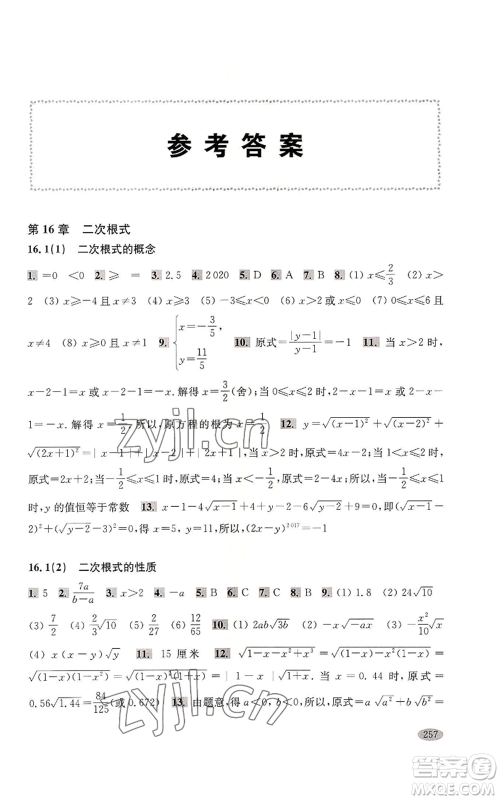 参考答案
第16章 二次根式
16.1(1) 二次根式的概念
1. =0 <0 2. ⩾ = 3. 2.5 4. 2020 5. D 6. A 7. C 8. (1) x⩽2/3 (2) x>
2 (3) x⩾-4 且 x≠3 (4) x>3 (5) x⩾3 (6) x=0 (7) 0⩽x⩽6 且
x≠4 (8) x>0 9. {x=-3/5, y=11/5 10. 原式=|y-1|/(y-1)=-1 11. 当 x>2 时,
x-2-1=x 或 x-2-1=-x. 解得 x=3/2(舍); 当 0⩽x⩽2 时, 2-x-1=x 或 2-x-
1=-x. 解得 x=1/2, 所以, 原方程的根为 x=1/2 12. y=√(x-1)²+√(x-2)²+
√(2x+1)²=|x-1|+|x-2|+|2x+1| 当 x>2 时, 原式=4x-2; 当 1<x⩽2
时, 原式=2x+2; 当-1/2⩽x⩽1 时, 原式=4; 当 x<-1/2 时, 原式=2-4x, 所以, 当-1/2⩽x⩽1
时, y 的值恒等于常数 13. x-1-4√x-1+4+y-2-6√y-2+9=0, 即(√x-1-
2)²+(√y-2-3)²=0, 得 x=5, y=11 所以, (2x-y)²⁰¹⁷=-1
16.1(2) 二次根式的性质
1. 5 2. 7a/(b-a) 3. x>2 4. -a 5. B 6. C 7. B 8. C 9. (1) 1.8 (2) 24√10
(3) 7/2 (4) 2/3√10 (5) 2/27 (6) 12/65 10. (1) 2ab√3b (2) -x√-x (3) -x²/10√10
(4) (x-y)√y 11. 15厘米 12. √1-x-x²+x³=√(1-x)-x²(1-x)=
√(1-x)(1-x²)=√(1-x)²(1+x)=|1-x|√1+x 当 x=0.44 时, 原式=
0.56√1.44=84/125(或 0.672) 13. 由题意, 得 a<0, b<0, 所以, 原式=a√a²+b²=
257
zyjl.cn
zyjl.cn
作业精灵